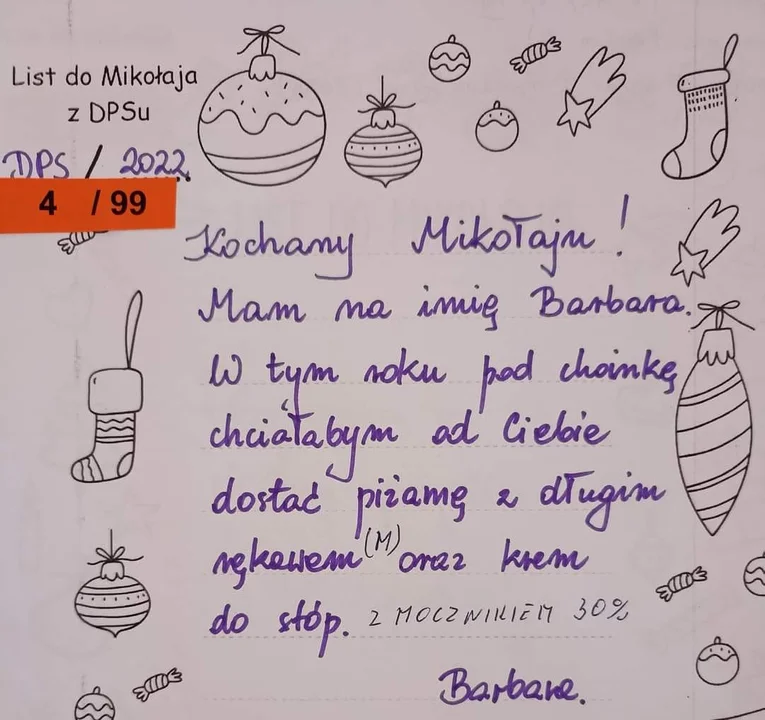 List do Mikołaja
z DPSu
DPS / 2022
4 / 99
Kochany Mikołaju!
Mam na imię Barbara.
W tym roku pod choinkę
chciałabym od Ciebie
dostać piżamę z długim
rękawem (M) oraz krem
do stóp. Z MOCZNIKIEM 30%
Barbara.